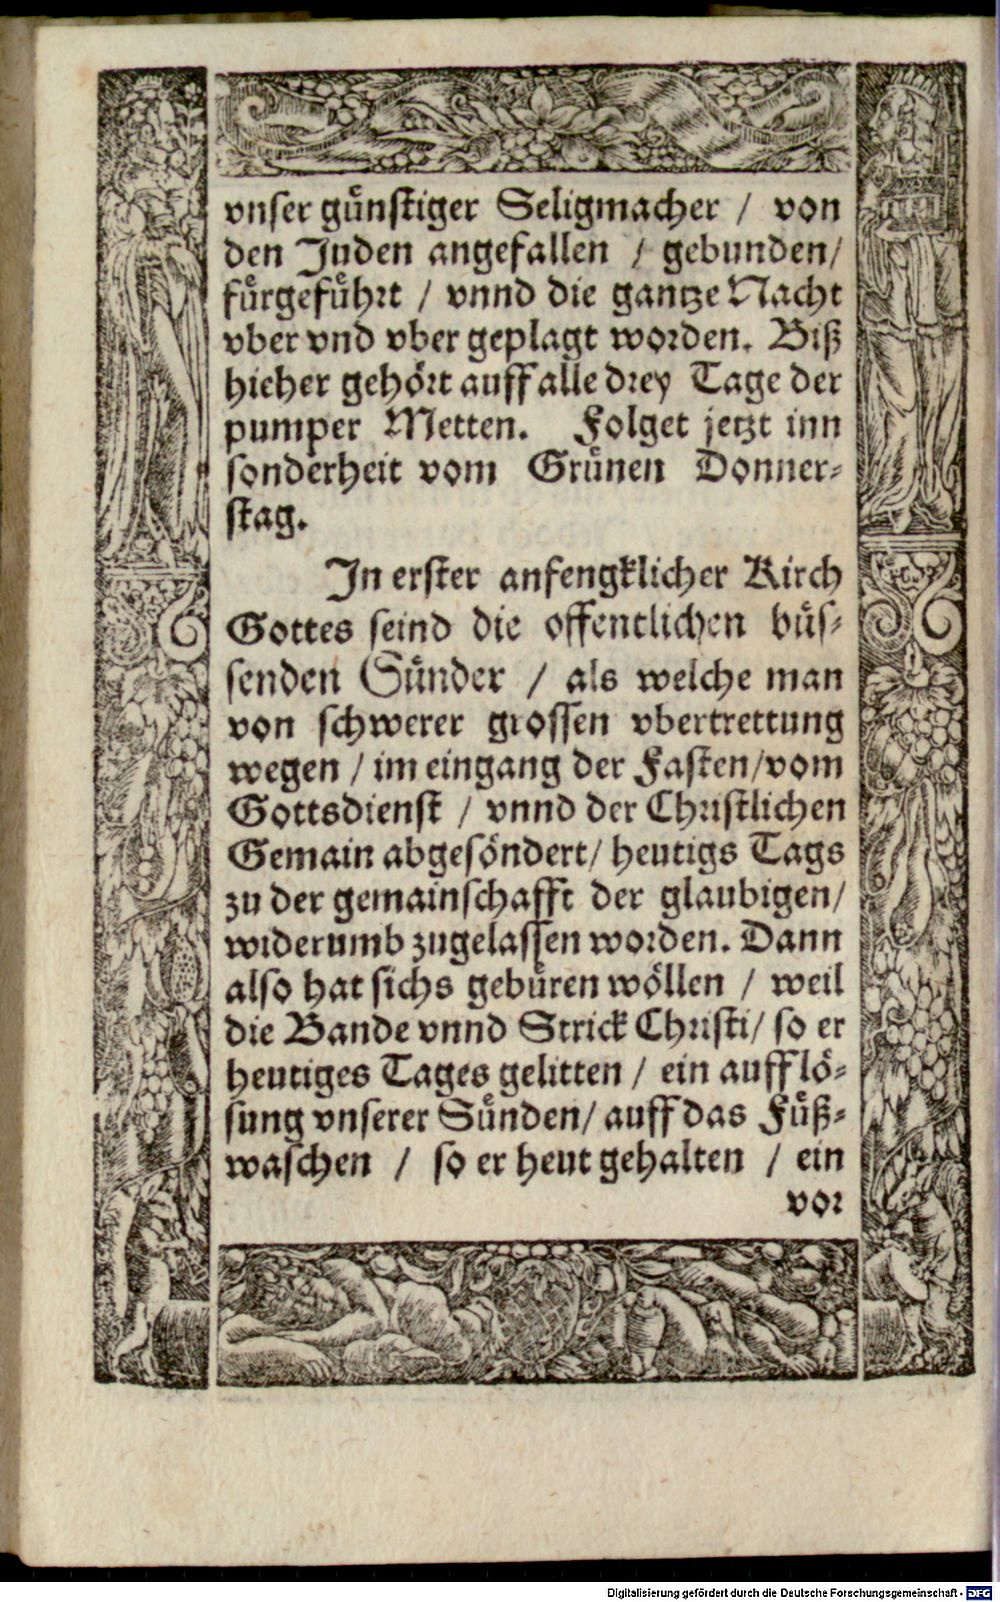 vnser gůnstiger Seligmacher / von
den Juden angefallen / gebunden/
fůrgefůhrt / vnnd die gantze Nacht
vber vnd vber geplagt worden. Biß
hieher gehört auff alle drey Tage der
pumper Metten. Folget jetzt inn
sonderheit vom Grůnen Donner-
stag.
In erster anfengklicher Kirch
Gottes seind die offentlichen bůs-
senden Sůnder / als welche man
von schwerer grossen vbertrettung
wegen / im eingang der Fasten/vom
Gottsdienst / vnnd der Christlichen
Gemain abgesöndert/ heutigs Tags
zu der gemainschafft der glaubigen/
widerumb zugelassen worden. Dann
also hat sichs gebůren wöllen / weil
die Bande vnnd Strick Christi/ so er
heutiges Tages gelitten / ein aufflö-
sung vnserer Sůnden/ auff das Fůß-
waschen / so er heut gehalten / ein
vor
Digitalisierung gefördert durch die Deutsche Forschungsgemeinschaft - DFG